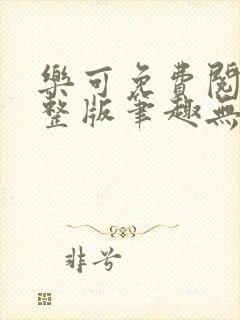 樂可免費閱
整版筆趣無
非兮